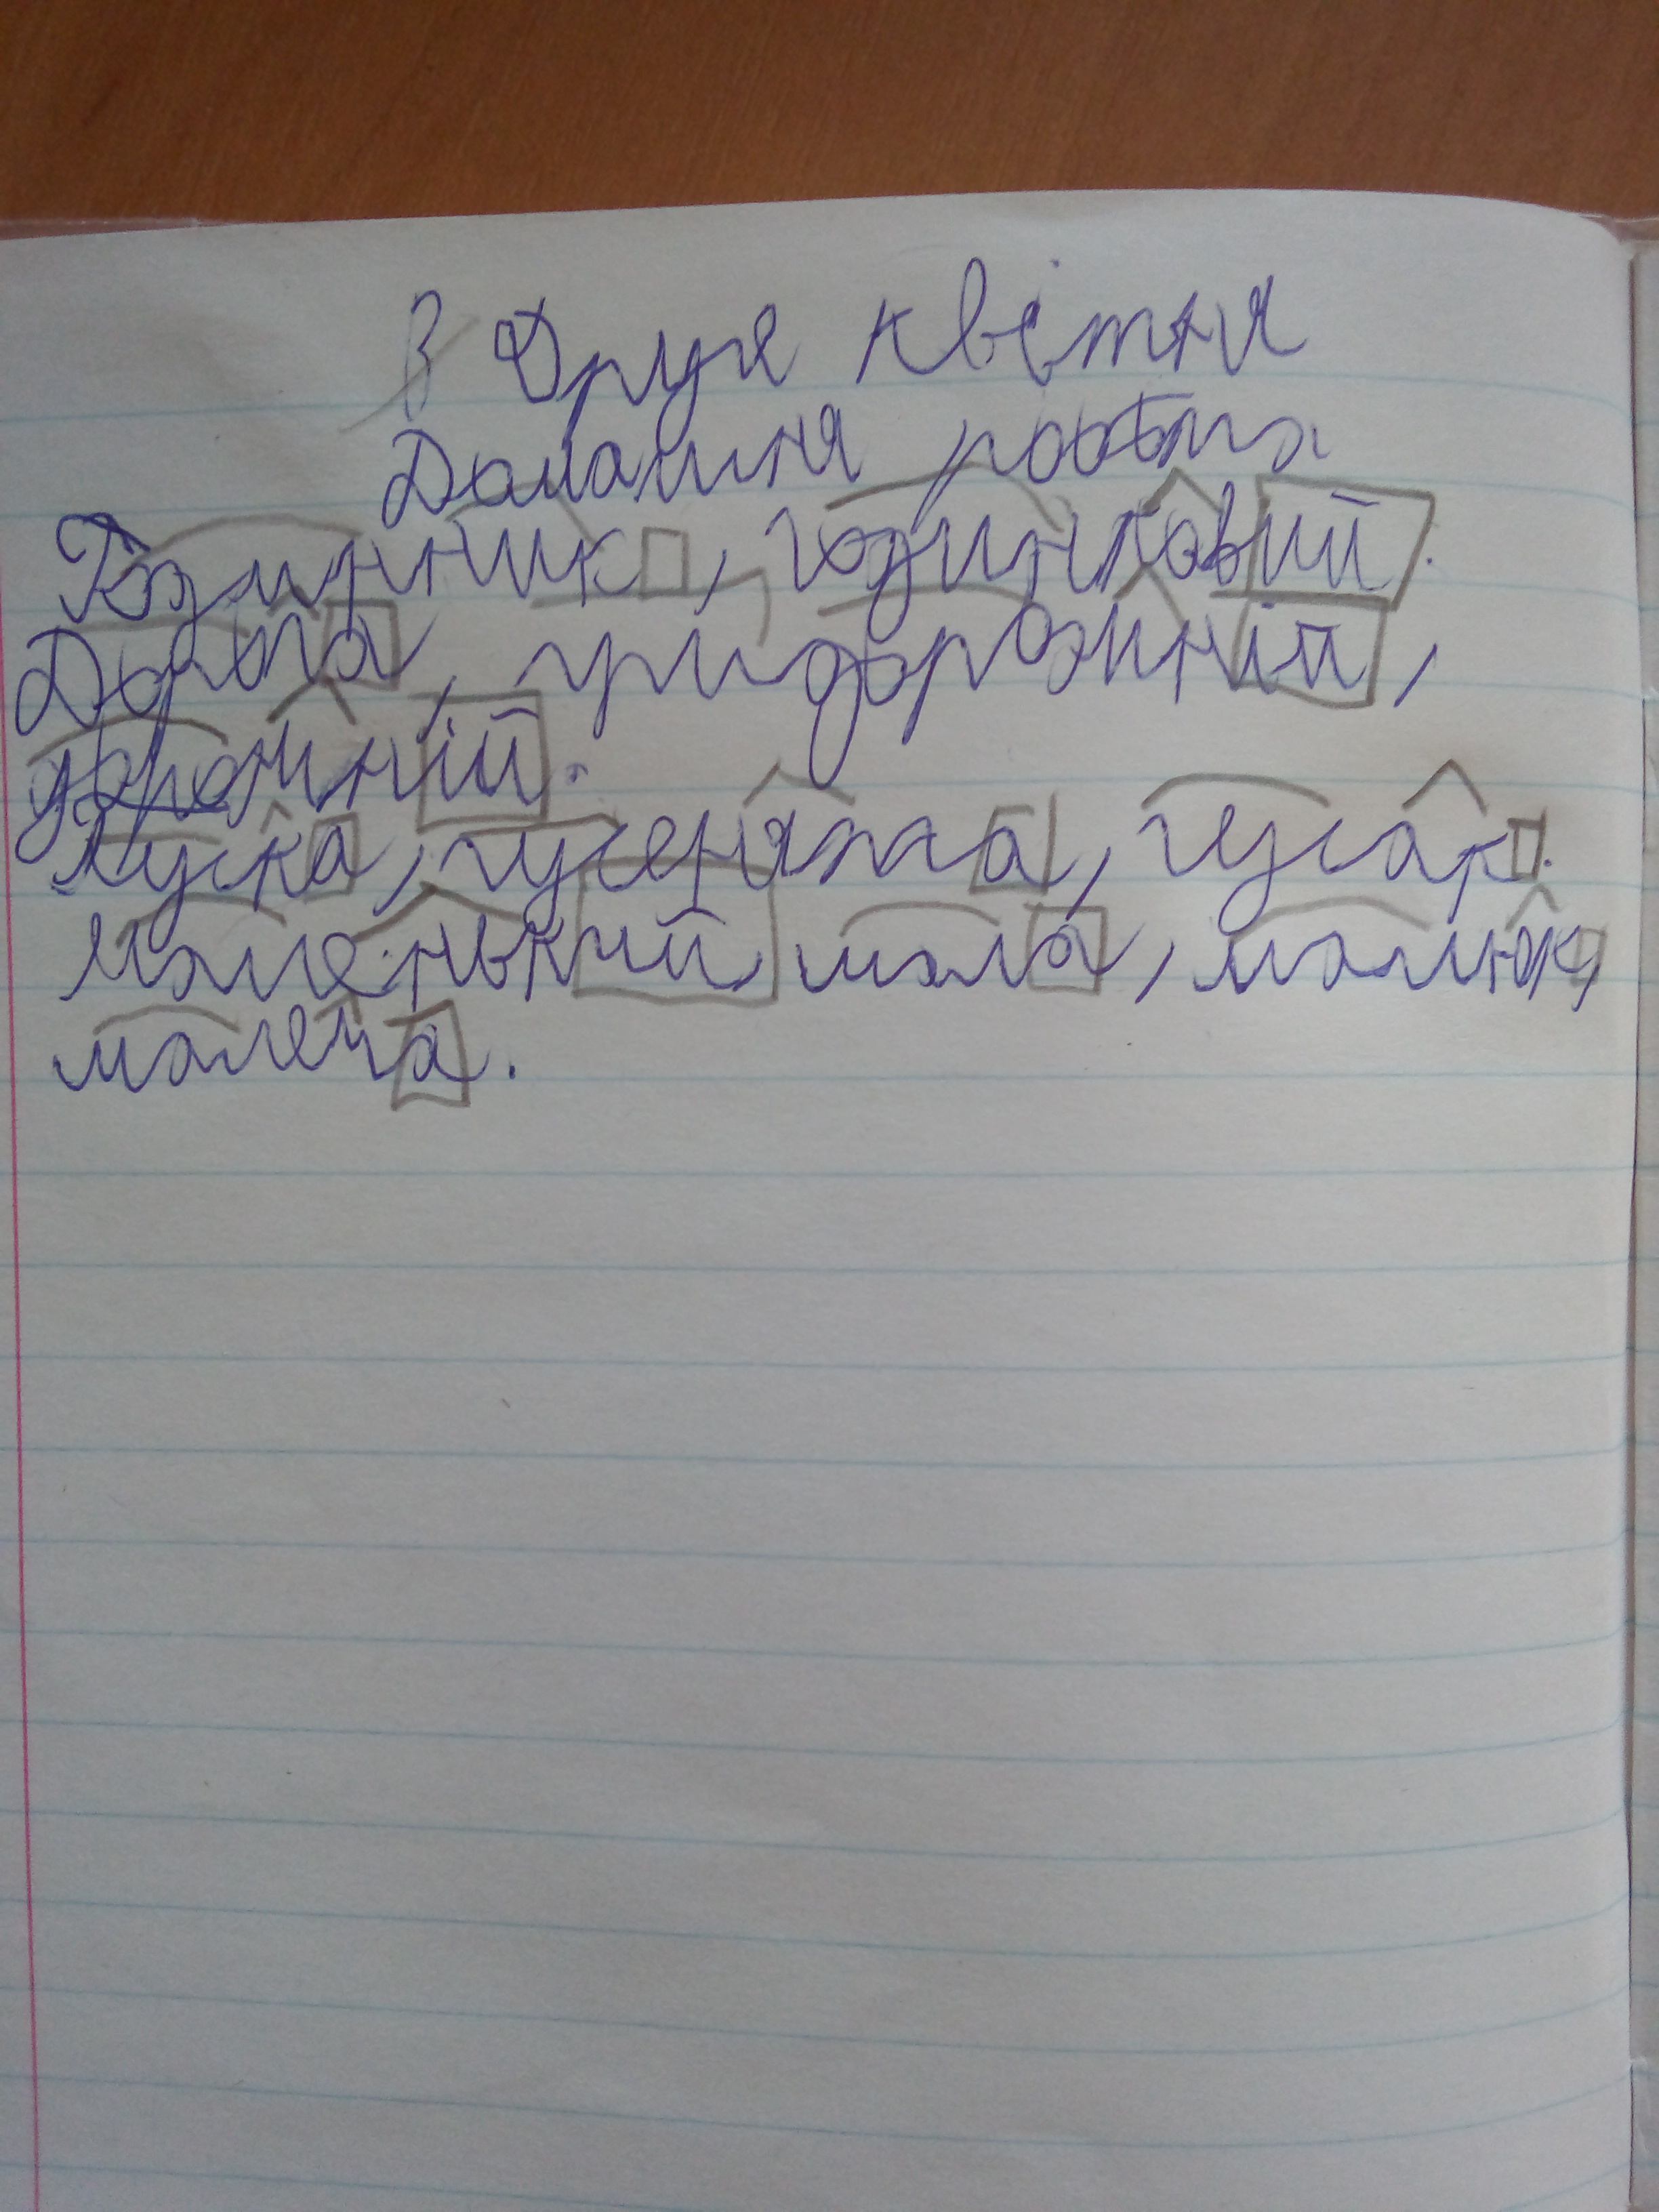 Друге квітня
Домашня робота
Годинник, годинковий.
Дорога, придорожній,
дорожній.
Гуска, гусенята, гусак.
Маленький, мала, малюк,
малеча.